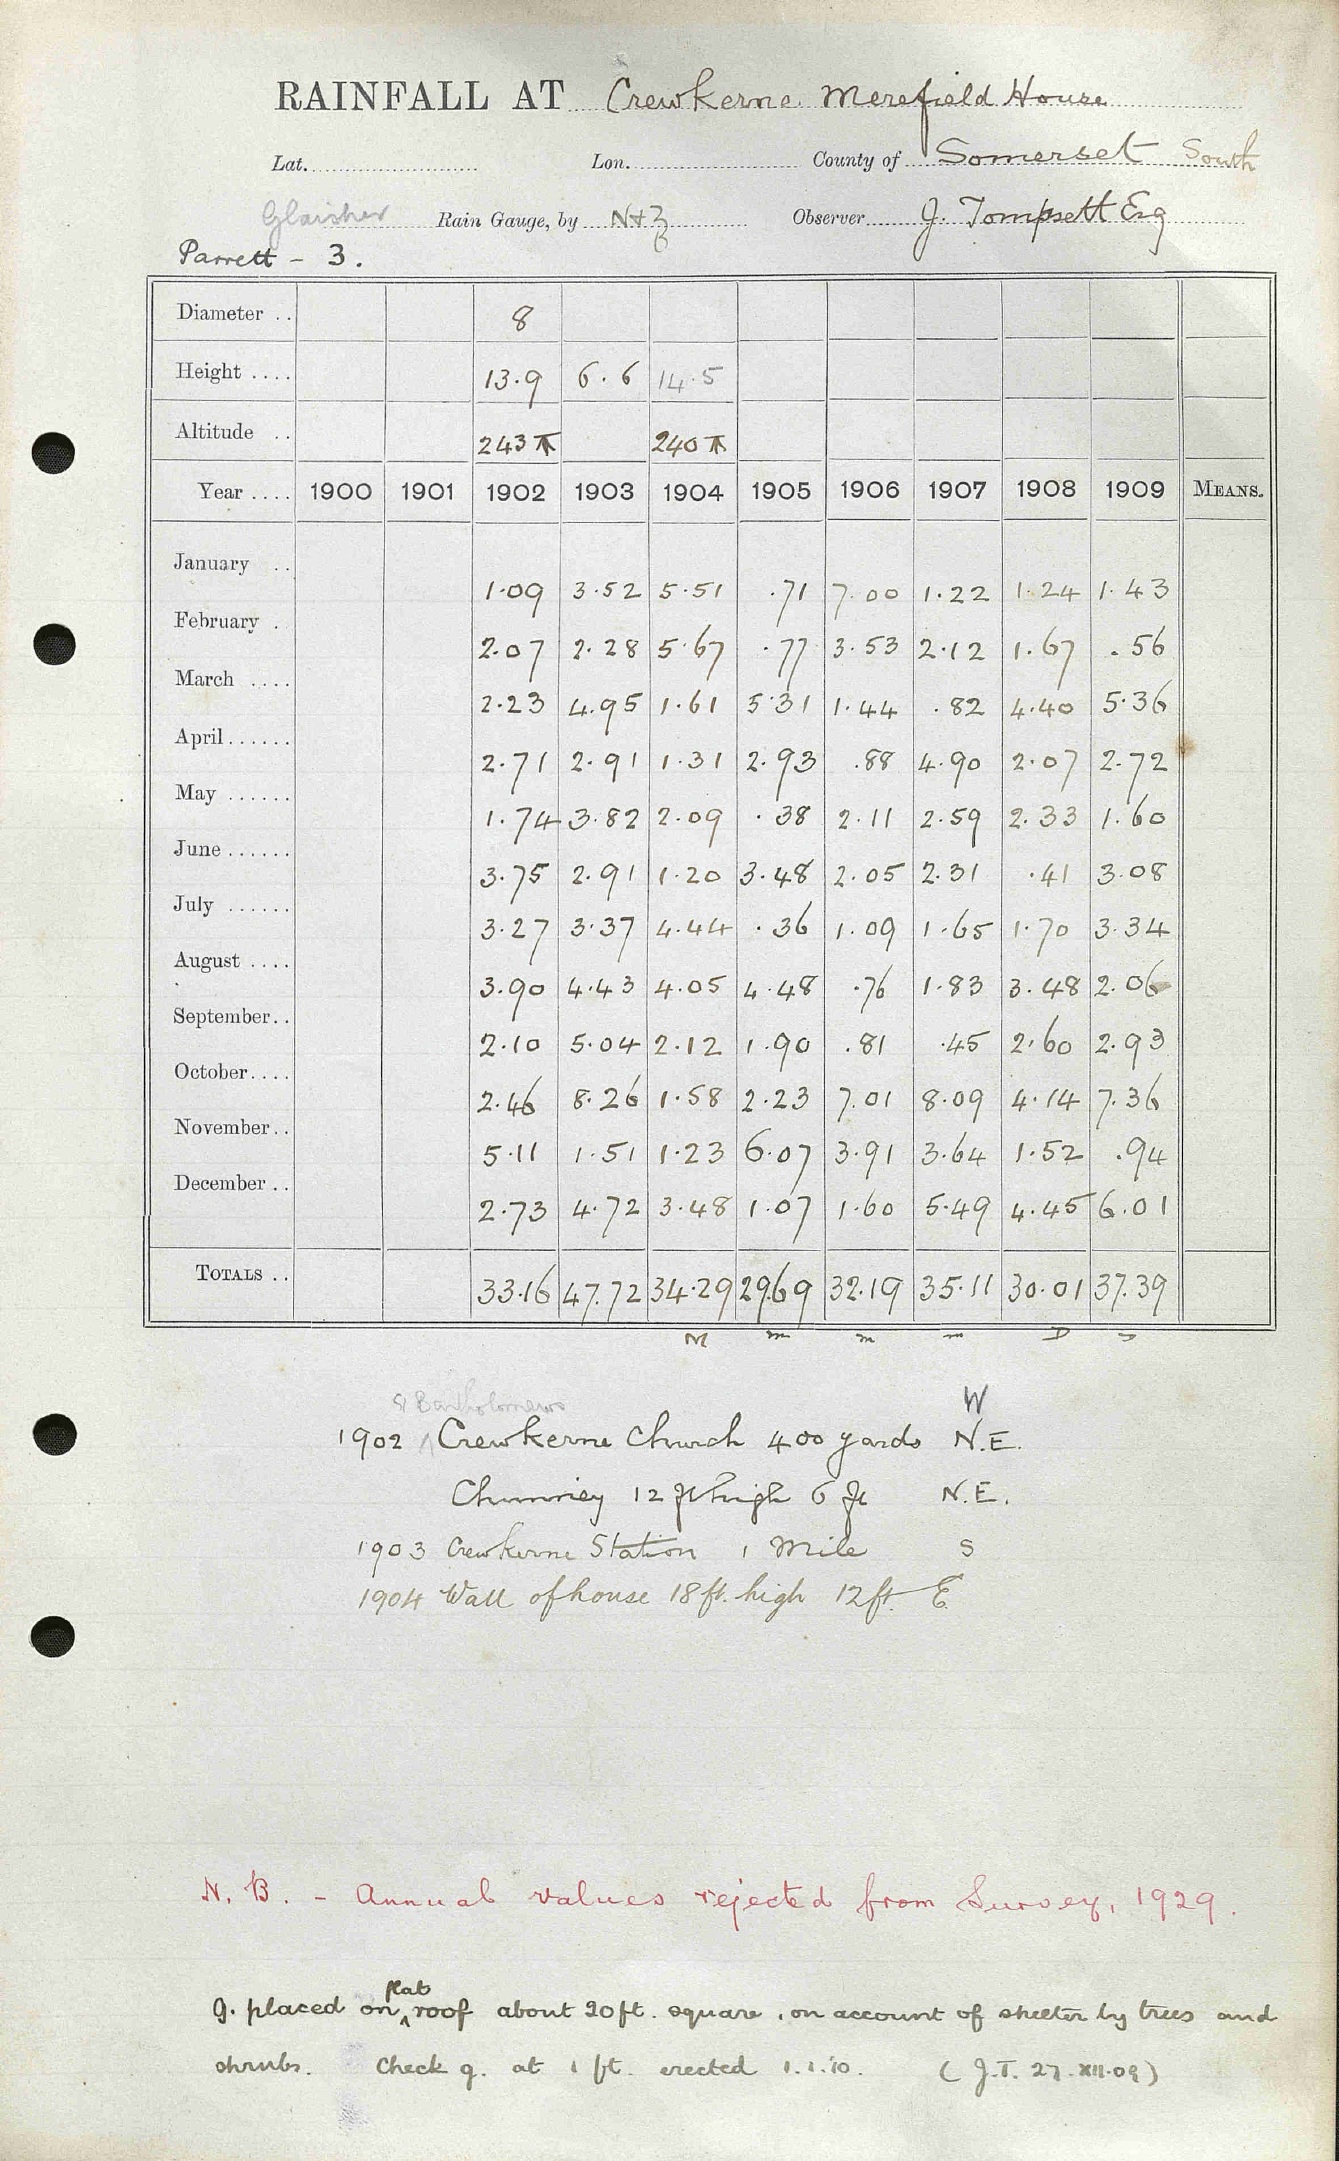 RAINFALL AT Crewkerne Merefield House
Lat. Lon. County of Somerset South
Glaisher Rain Gauge, by N+Z Observer J. Tompsett Esq
Parrett - 3.
Diameter .. 8
Height .... 13.9 6.6 14.5
Altitude .. 243 240
Year .... 1900 1901 1902 1903 1904 1905 1906 1907 1908 1909 MEANS.
January .. 1.09 3.52 5.51 .71 7.00 1.22 1.24 1.43
February . 2.07 2.28 5.67 .77 3.53 2.12 1.67 .56
March .... 2.23 4.95 1.61 5.31 1.44 .82 4.40 5.36
April...... 2.71 2.91 1.31 2.93 .88 4.90 2.07 2.72
May ...... 1.74 3.82 2.09 .38 2.11 2.59 2.33 1.60
June ...... 3.75 2.91 1.20 3.48 2.05 2.31 .41 3.08
July ...... 3.27 3.37 4.44 .36 1.09 1.65 1.70 3.34
August .... 3.90 4.43 4.05 4.48 .76 1.83 3.48 2.06
September.. 2.10 5.04 2.12 1.90 .81 .45 2.60 2.93
October.... 2.46 8.26 1.58 2.23 7.01 8.09 4.14 7.36
November.. 5.11 1.51 1.23 6.07 3.91 3.64 1.52 .94
December .. 2.73 4.72 3.48 1.07 1.60 5.49 4.45 6.01
TOTALS .. 33.16 47.72 34.29 29.69 32.19 35.11 30.01 37.39
St Bartholomews W
1902 Crewkerne Church 400 yards N.E.
Chimney 12 ft high 6 ft N.E.
1903 Crewkerne Station 1 Mile S
1904 Wall of house 18 ft. high 12 ft. E
N. B. - Annual values rejected from Survey, 1929.
flat
g. placed on roof about 20 ft. square, on account of shelter by trees and
shrubs. Check g. at 1 ft. erected 1.1.10. (J.T. 27.XII.09)